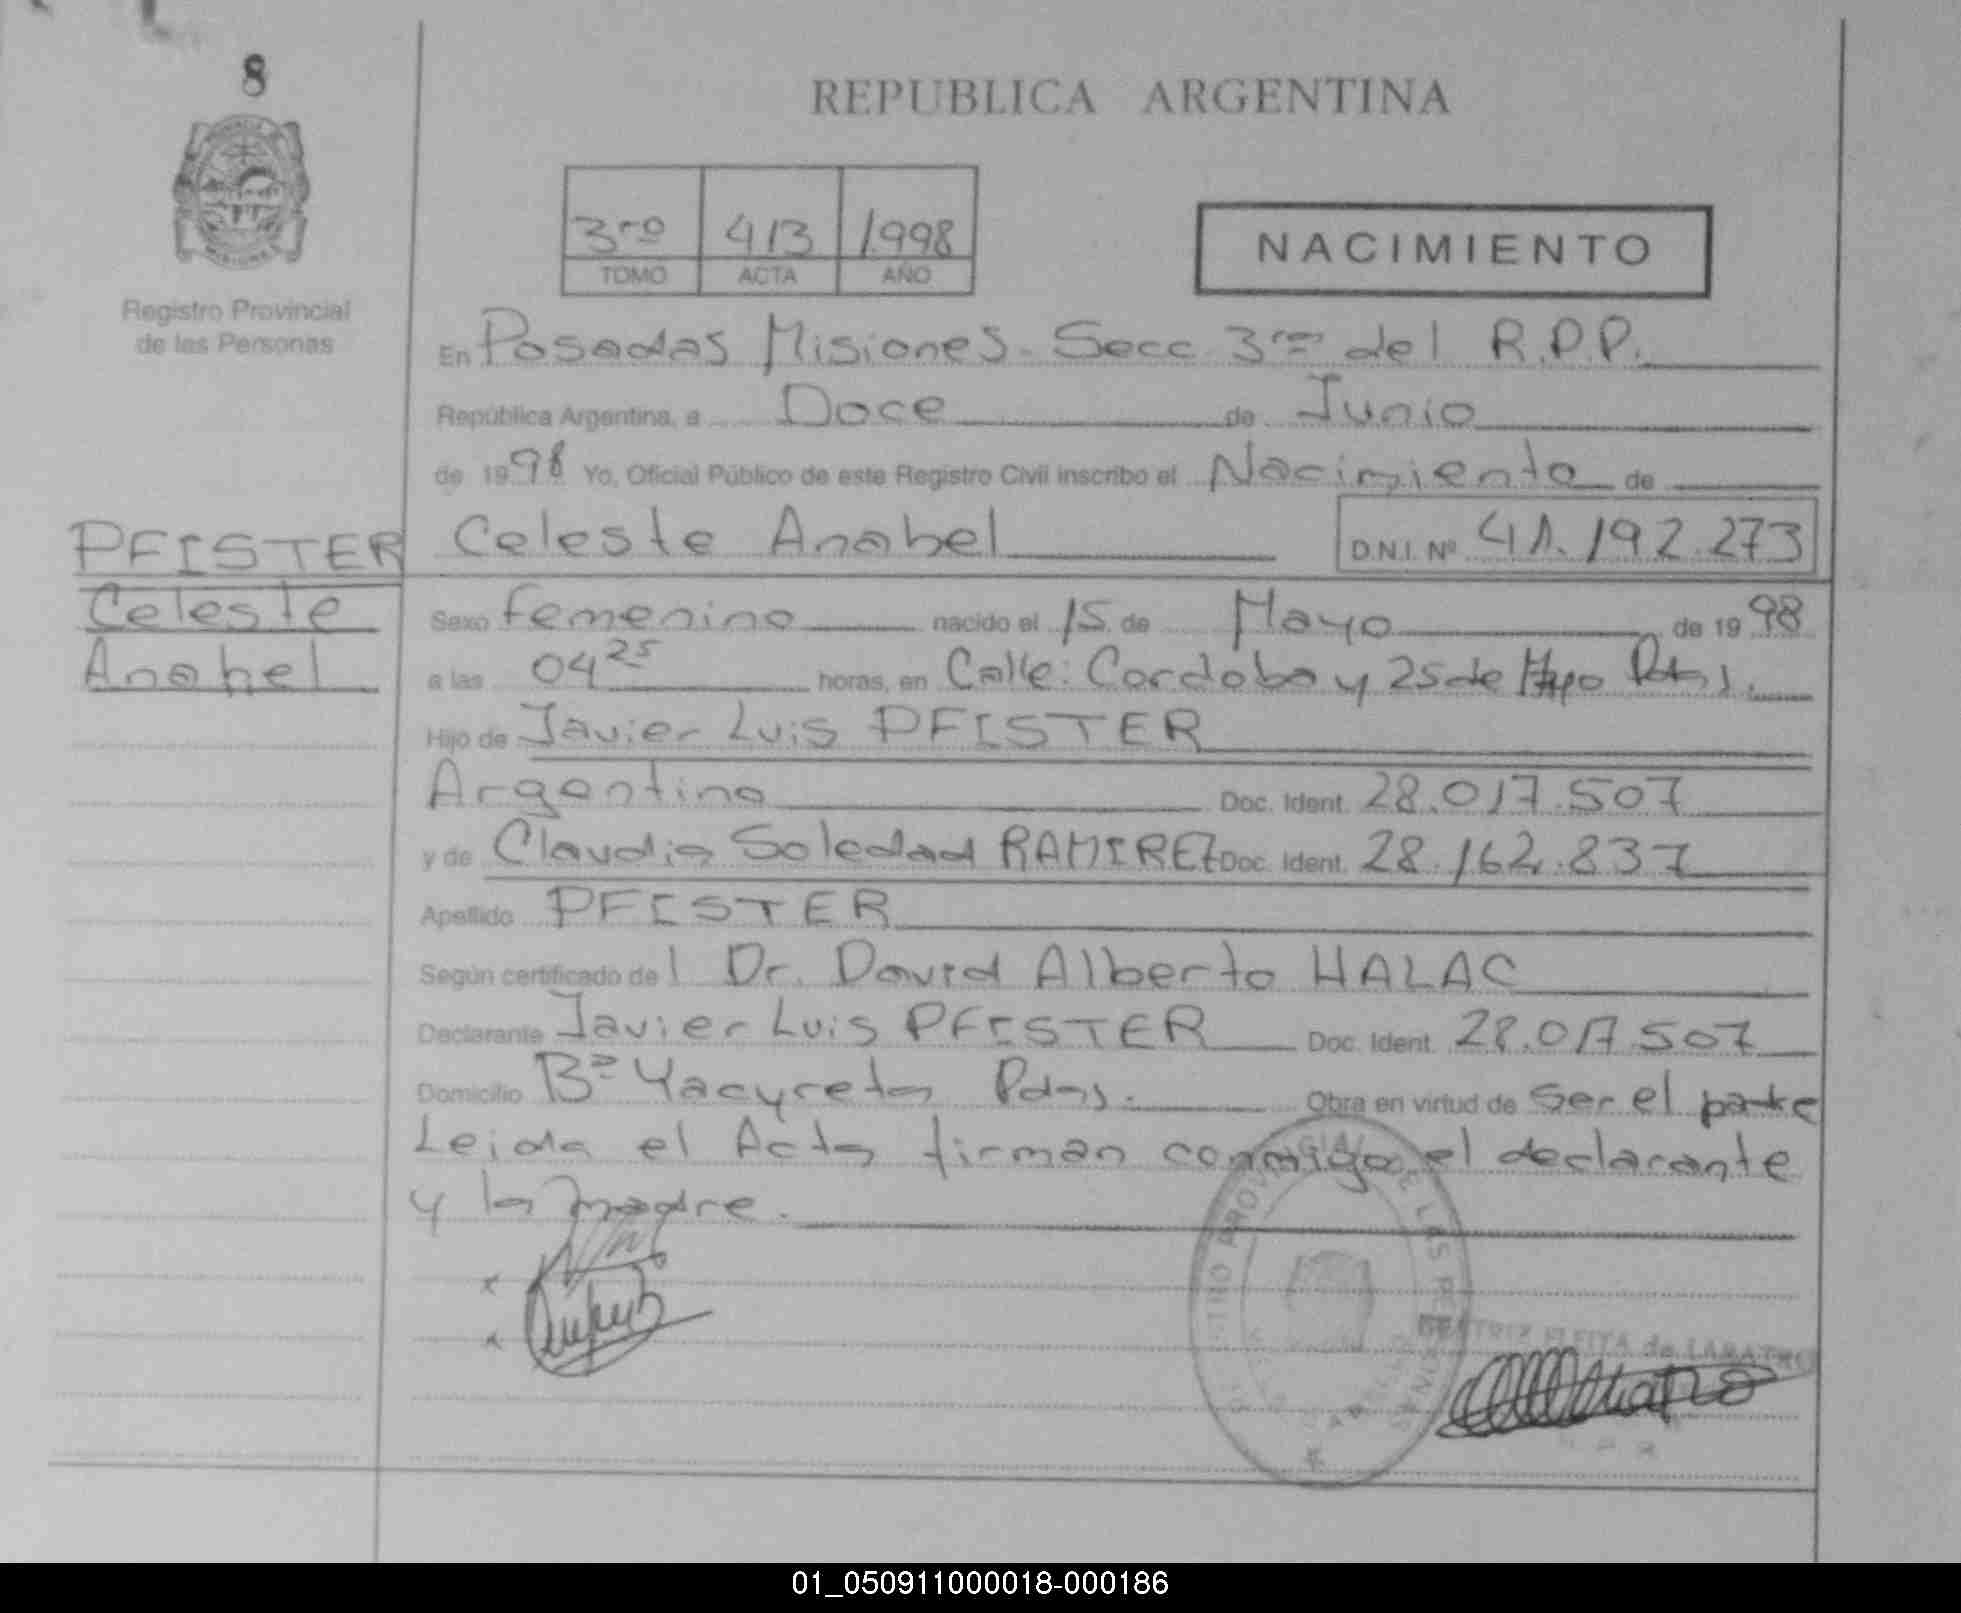 8
REPUBLICA ARGENTINA
3ro 413 1.998
TOMO ACTA AÑO
NACIMIENTO
Registro Provincial
de las Personas
En Posadas Misiones. Secc. 3ra del R.P.P.
República Argentina, a Doce de Junio
de 1998 Yo, Oficial Público de este Registro Civil inscribo el Nacimiento de
PFISTER Celeste Anabel D.N.I. Nº 41.192.273
Celeste
Anabel
Sexo femenino nacido el 15 de Mayo de 1998
a las 04 25 horas, en Calle: Cordoba y 25 de Mayo Pdas.
Hijo de Javier Luis PFISTER
Argentina Doc. Ident. 28.017.507
y de Claudia Soledad RAMIREZ Doc. Ident. 28.162.837
Apellido PFISTER
Según certificado del Dr. David Alberto HALAC
Declarante Javier Luis PFISTER Doc. Ident. 28.017.507
Domicilio Bº Yacyreta Pdas. Obra en virtud de ser el padre
Leida el Acta firman conmigo el declarante
y la madre.
BEATRIZ de
01_050911000018-000186